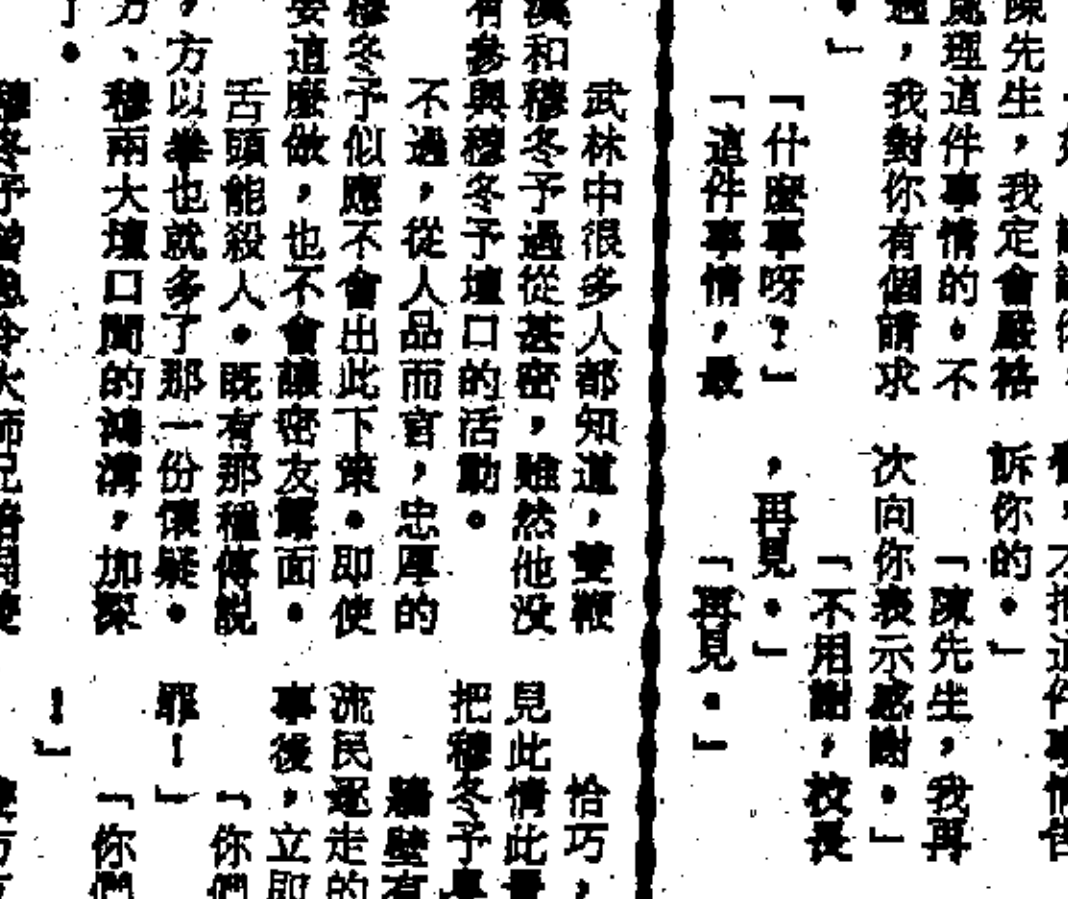 陳先生，我定會嚴格
處理這件事情的。不
過，我對你有個請求
。」
「什麼事呀？」
「這件事情，最
訴你的。」
「陳先生，我再
次向你表示感謝。」
「不用謝，校長
，再見。」
「再見。」
武林中很多人都知道，雙鞭
漢和穆冬予過從甚密，雖然他沒
有參與穆冬予壇口的活動。
不過，從人品而言，忠厚的
穆冬予似應不會出此下策。即使
要這麼做，也不會讓密友露面。
舌頭能殺人。既有那種傳說
，方以拳也就多了那一份懷疑。
方、穆兩大壇口間的鴻溝，加深
了。
恰巧，
見此情此景
把穆冬予
牆壁有
流民逐走的
事後，立即
「你們
罪！」
「你們
！」